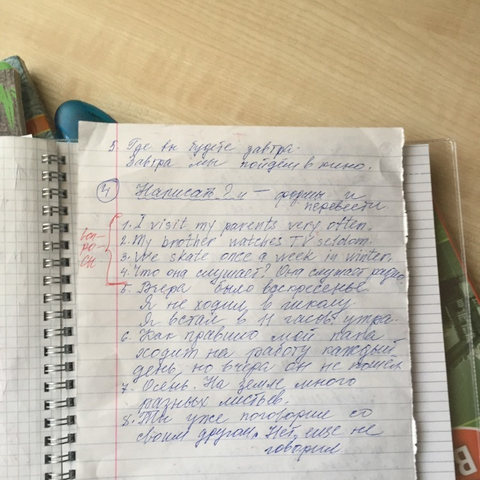 5. Где вы будете завтра.
Завтра мы пойдём в кино.
4 Написать 2 и — формы и
перевести
воп-
ро-
сы
1. I visit my parents very often.
2. My brother watches TV seldom.
3. We skate once a week in winter.
4. Что она слушает? Она слушает радио
5. Вчера было воскресенье
Я не ходил в школу.
Я встал в 11 часов утра.
6. Как правило мой папа
ходит на работу каждый
день, но вчера он не пошёл
7. Осень. На земле много
разных листьев.
8. Ты уже поговорил со
своим другом. Нет, еще не
говорил
В